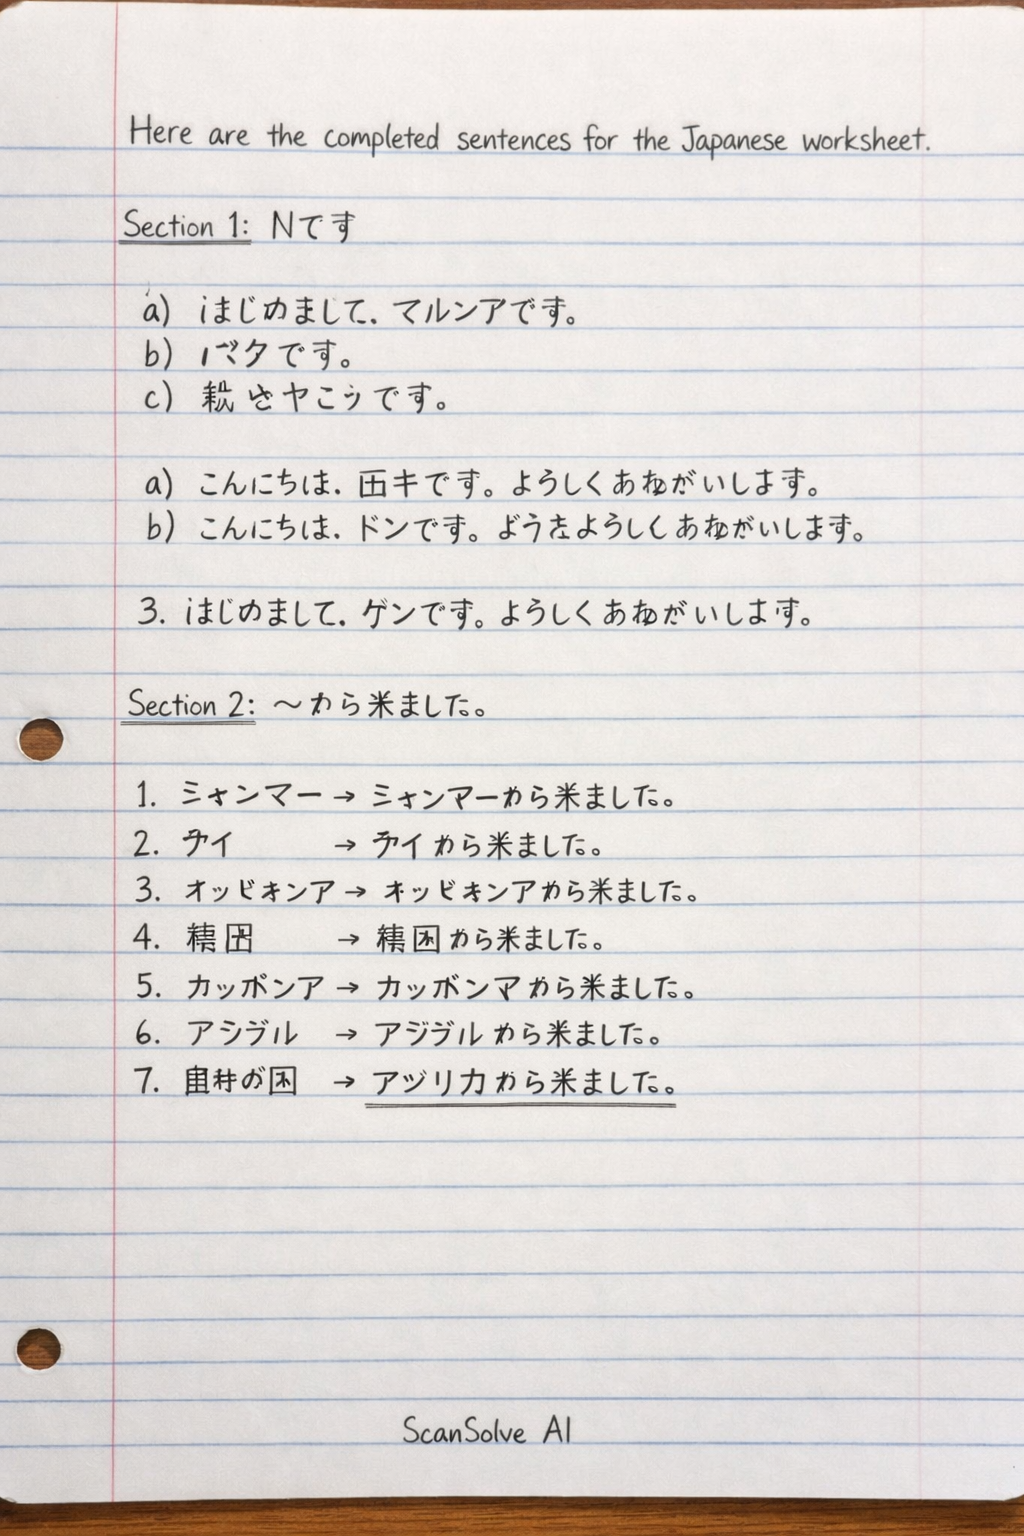 Here are the completed sentences for the Japanese worksheet.
Section 1: Nです
a) はじめまして. マルンアです。
b) バタです。
c) です。
a) こんにちは. キです。ようしくあねがいします。
b) こんにちは. ドンです。ようしくあねがいします。
3. はじめまして. ゲンです。ようしくあねがいします。
Section 2: 〜から米ました。
1. ミャンマー → ミャンマーから米ました。
2. → から米ました。
3. オッビキンア → キッビキンアから米ました。
4. → から米ました。
5. カッボンア → カッボンマから米ました。
6. アシヅル → アジヅルから米ました。
7. → アヅリカから米ました。
ScanSolve AI